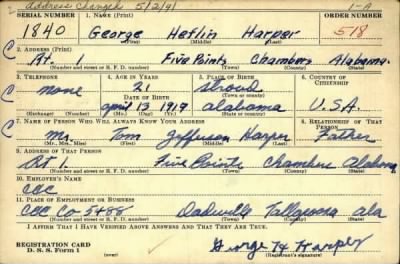 Address Changed 5/2/41 1-A
SERIAL NUMBER 1. NAME (Print) ORDER NUMBER
1840 George Heflin Harper 518
(First) (Middle) (Last)
2. ADDRESS (Print)
Rt. 1 Five Points Chambers Alabama
(Number and street or R. F. D. number) (Town) (County) (State)
3. TELEPHONE 4. AGE IN YEARS 5. PLACE OF BIRTH 6. COUNTRY OF CITIZENSHIP
none 21 Stroud
DATE OF BIRTH (Town or county)
April 13 1919 Alabama U.S.A.
(Exchange) (Number) (Mo.) (Day) (Yr.) (State or country)
7. NAME OF PERSON WHO WILL ALWAYS KNOW YOUR ADDRESS 8. RELATIONSHIP OF THAT PERSON
Mr. Tom Jefferson Harper Father
(Mr., Mrs., Miss) (First) (Middle) (Last)
9. ADDRESS OF THAT PERSON
Rt 1. Five Points Chambers Alabama
(Number and street or R. F. D. number) (Town) (County) (State)
10. EMPLOYER'S NAME
CCC
11. PLACE OF EMPLOYMENT OR BUSINESS
CCC Co 5488 Dadeville Tallapoosa Ala
(Number and street or R. F. D. number) (Town) (County) (State)
I AFFIRM THAT I HAVE VERIFIED ABOVE ANSWERS AND THAT THEY ARE TRUE.
REGISTRATION CARD
D. S. S. Form 1 George H Harper
(Registrant's signature)